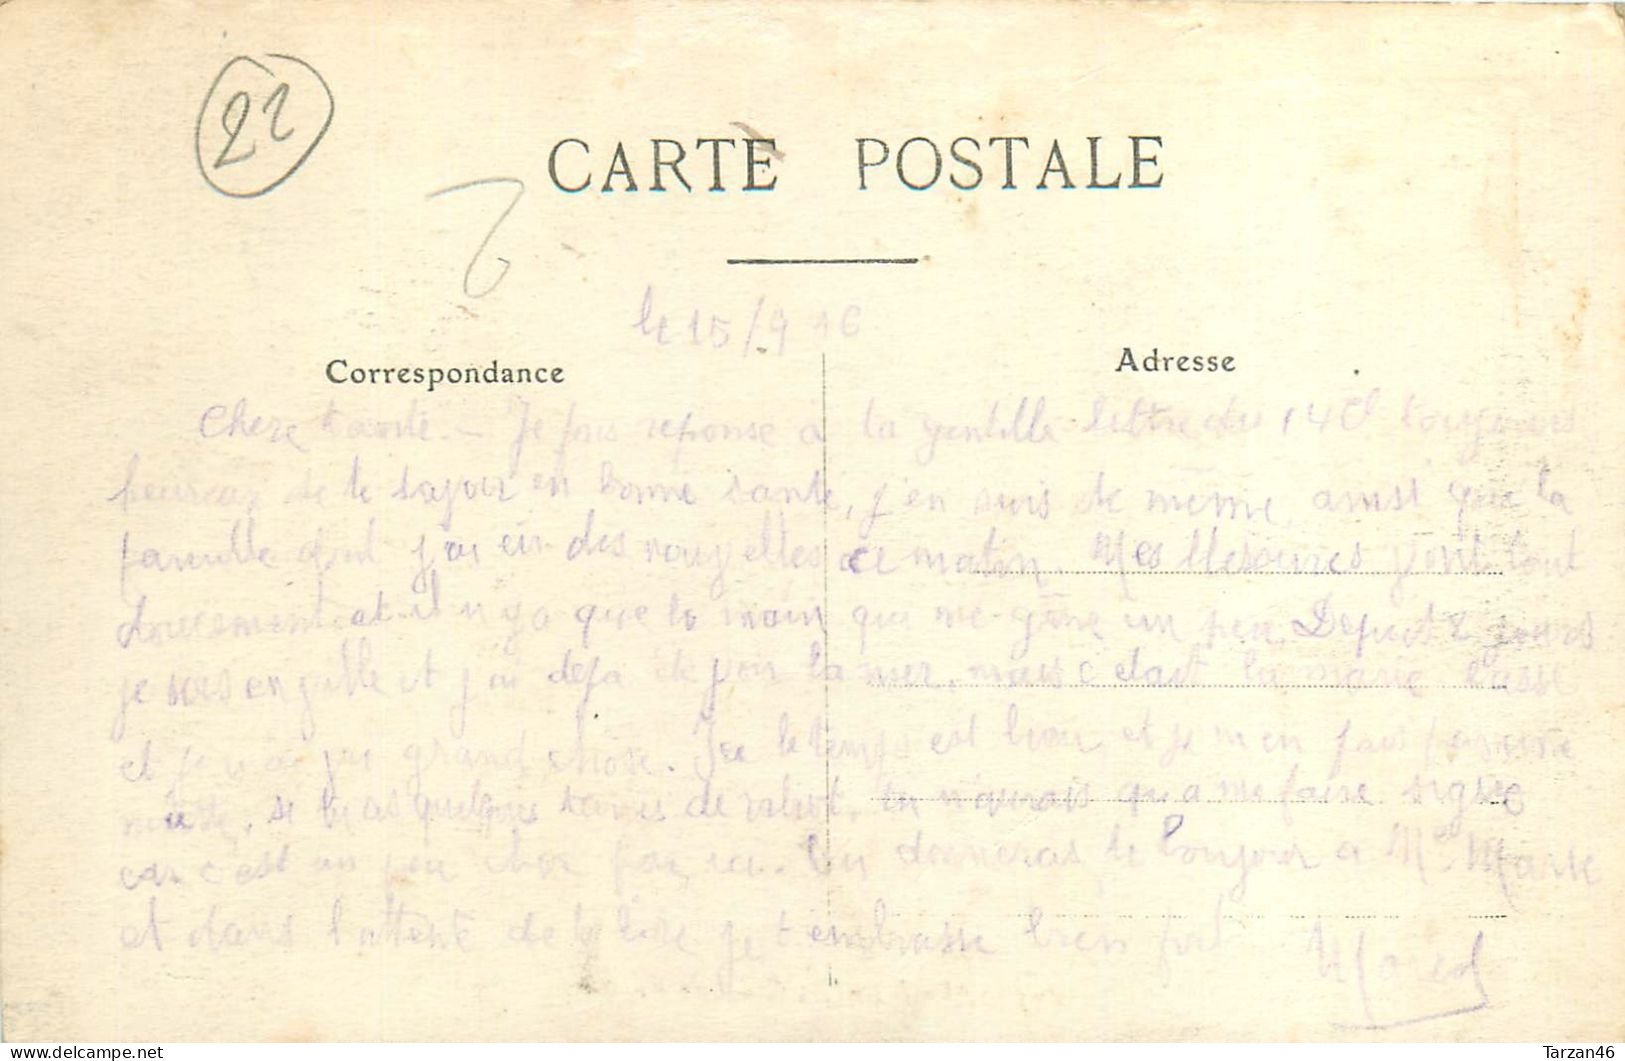 22
CARTE POSTALE
le 15/9 16
Correspondance
Adresse
Chere tante. - Je fais reponse à ta gentille lettre du 14 ct toujours
heureux de te savoir en bonne sante, j'en suis de meme, ainsi que la
famille dont j'ai eu des nouvelles ce matin. Mes blessures vont tout
doucement et il n'y a que la main qui me gêne un peu. Depuis 2 jours
je suis en ville et j'ai deja de voir la mer, mais c etait la maree basse
et je n'ai vu grand chose. Ici le temps est bon, et je m en fais pas
si tu as quelques de rabiot, tu n'aurais qu a me faire signe
car c'est un peu cher par ici. Tu donneras le bonjour a Me Marie
et dans l attente de te lire je t embrasse bien fort
Tarzan46